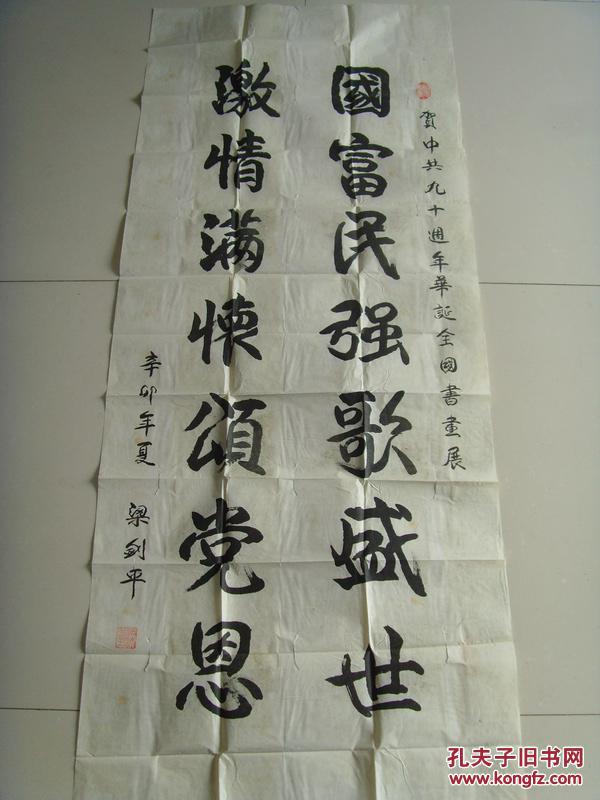 賀中共九十週年華誕全國書畫展
國富民强歌盛世
激情满懷頌党恩
辛卯年夏 梁剑平
孔夫子旧书网
www.kongfz.com